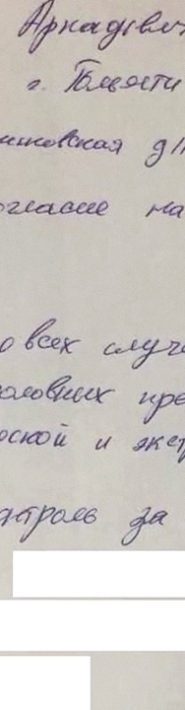 Аркадьевич
г. Тольятти
иновская д/
огласие на
о всех случ
оловных пре
еской и экст
нтроль за